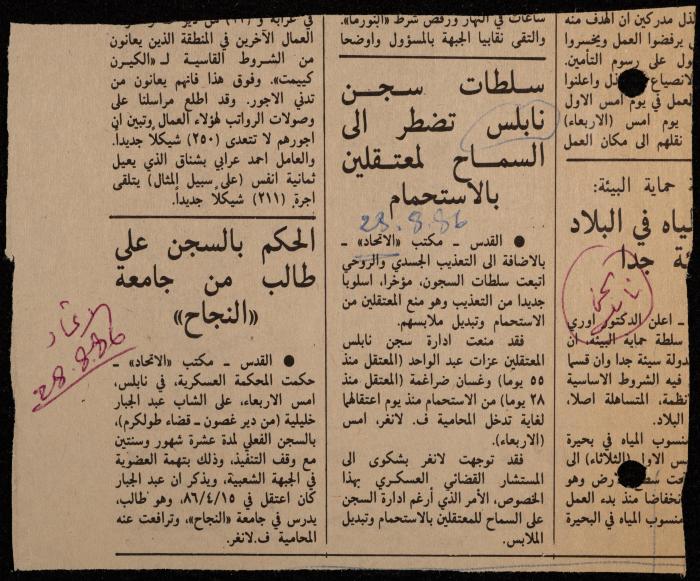 ذل مدركين ان الهدف منه
يرفضوا العمل ويخسروا
ول على رسوم التأمين.
لانصياع
ذل واعلنوا
لعمل في يوم امس الاول
يوم امس (الاربعاء)
نقلهم الى مكان العمل
حماية البيئة:
ياه في البلاد
ئة جدا
سجن
نابلس
ـ اعلن الدكتور اوري
سلطة حماية البيئة، ان
دولة سيئة جدا وان قسما
فيه الشروط الاساسية
نظمة، المتساهلة اصلا،
البلاد.
منسوب المياه في بحيرة
س الاول (الثلاثاء) الى
رض وهو
نخفاضا منذ بدء العمل
منسوب المياه في البحيرة
ساعات في النهار ورفض شرط «النورما».
والتقى نقابيا الجبهة بالمسؤول واوضحا
سلطات سجن
نابلس تضطر الى
السماح لمعتقلين
بالاستحمام
28.8.86
● القدس ـ مكتب «الاتحاد» ـ
بالاضافة الى التعذيب الجسدي والروحي
اتبعت سلطات السجون، مؤخرا، اسلوبا
جديدا من التعذيب وهو منع المعتقلين من
الاستحمام وتبديل ملابسهم.
فقد منعت ادارة سجن نابلس
المعتقلين عزات عبد الواحد (المعتقل منذ
٥٥ يوما) وغسان ضراغمة (المعتقل منذ
٢٨ يوما) من الاستحمام منذ يوم اعتقالهما
لغاية تدخل المحامية ف. لانغر، امس
(الاربعاء).
فقد توجهت لانغر بشكوى الى
المستشار القضائي العسكري بهذا
الخصوص، الأمر الذي أرغم ادارة السجن
على السماح للمعتقلين بالاستحمام وتبديل
الملابس.
في عرابة و
العمال الآخرين في المنطقة الذين يعانون
من الشروط القاسية لـ «الكيرن
كييمت». وفوق هذا فانهم يعانون من
تدني الاجور. وقد اطلع مراسلنا على
وصولات الرواتب لهؤلاء العمال وتبين ان
اجورهم لا تتعدى (٢٥٠) شيكلاً جديداً.
والعامل احمد عرابي بشناق الذي يعيل
ثمانية انفس (على سبيل المثال) يتلقى
اجرة (٢١١) شيكلاً جديداً.
الحكم بالسجن على
طالب من جامعة
«النجاح»
● القدس ـ مكتب «الاتحاد» ـ
حكمت المحكمة العسكرية، في نابلس،
امس الاربعاء، على الشاب عبد الجبار
خليلية (من دير غصون ـ قضاء طولكرم)،
بالسجن الفعلي لمدة عشرة شهور وسنتين
مع وقف التنفيذ، وذلك بتهمة العضوية
في الجبهة الشعبية، ويذكر ان عبد الجبار
كان اعتقل في ٨٦/٤/١٥، وهو طالب،
يدرس في جامعة «النجاح»، وترافعت عنه
المحامية ف.لانغر.
28.8.86